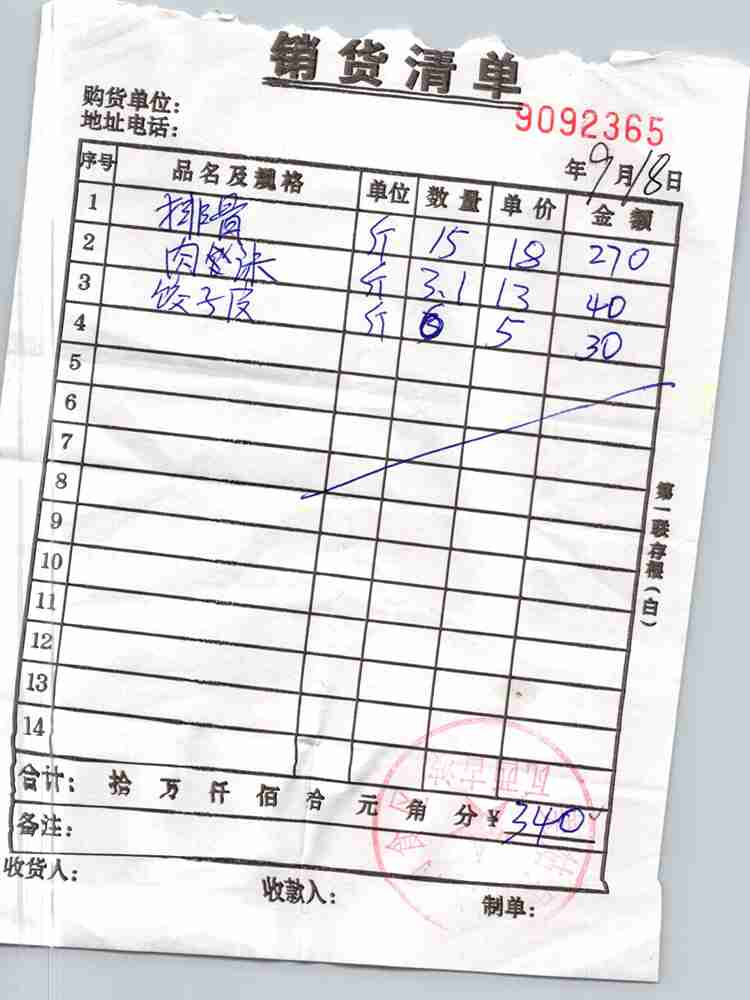 销货清单
购货单位：
地址电话：
9092365
年9月18日
序号 品名及规格 单位 数量 单价 金额
1 排骨 斤 15 18 270
2 肉 斤 3.1 13 40
3 饺子皮 斤 6 5 30
4
5
6
7
8
9
10
11
12
13
14
第一联存根(白)
合计： 拾 万 仟 佰 拾 元 角 分 ¥340
备注：
收货人：
收款人：
制单：